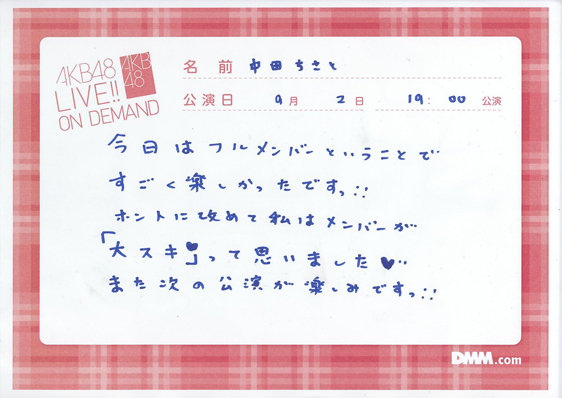 AKB48
LIVE!!
ON DEMAND
AKB
48
名 前 中田ちさと
公演日 9月 2日 19:00 公演
今日はフルメンバーということで
すごく楽しかったですっ!!
ホントに改めて私はメンバーが
「大スキ♥」って思いました♥
また次の公演が楽しみですっ!!
DMM.com